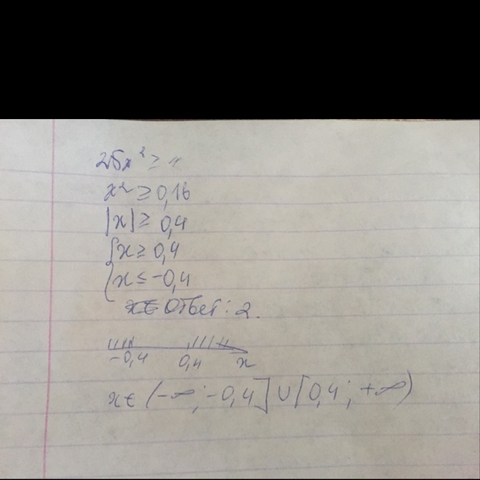 25x² ≥ 4
x² ≥ 0,16
|x| ≥ 0,4
{x ≥ 0,4
{x ≤ -0,4
Ответ: 2.
-0,4 0,4 x
x ∈ (-∞; -0,4] ∪ [0,4; +∞)